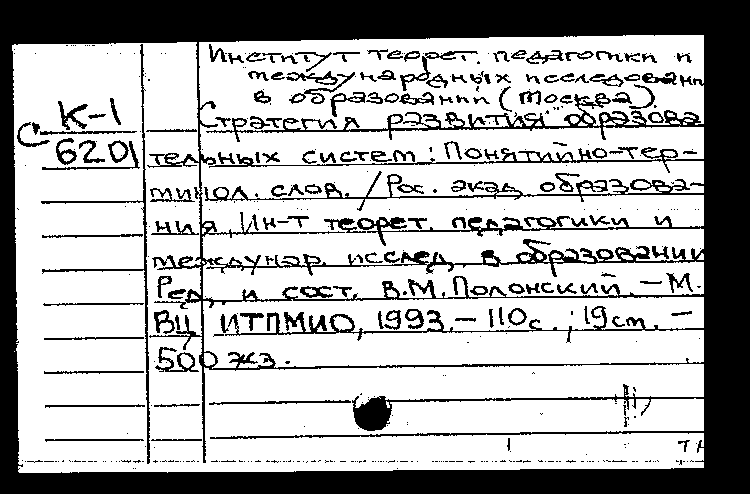 Институт теорет. педагогики и
международных исследовани
в образовании (Москва)
К-1
Стратегия развития образова
С
6201
тельных систем: Понятийно-тер-
минол. слов. / Рос. акад. образова-
ния, Ин-т теорет. педагогики и
междунар. исслед. в образовании
Ред. и сост. В.М. Полонский. - М.
ВЦ ИТПМИО, 1993. - 110с.; 19см. -
500 экз.